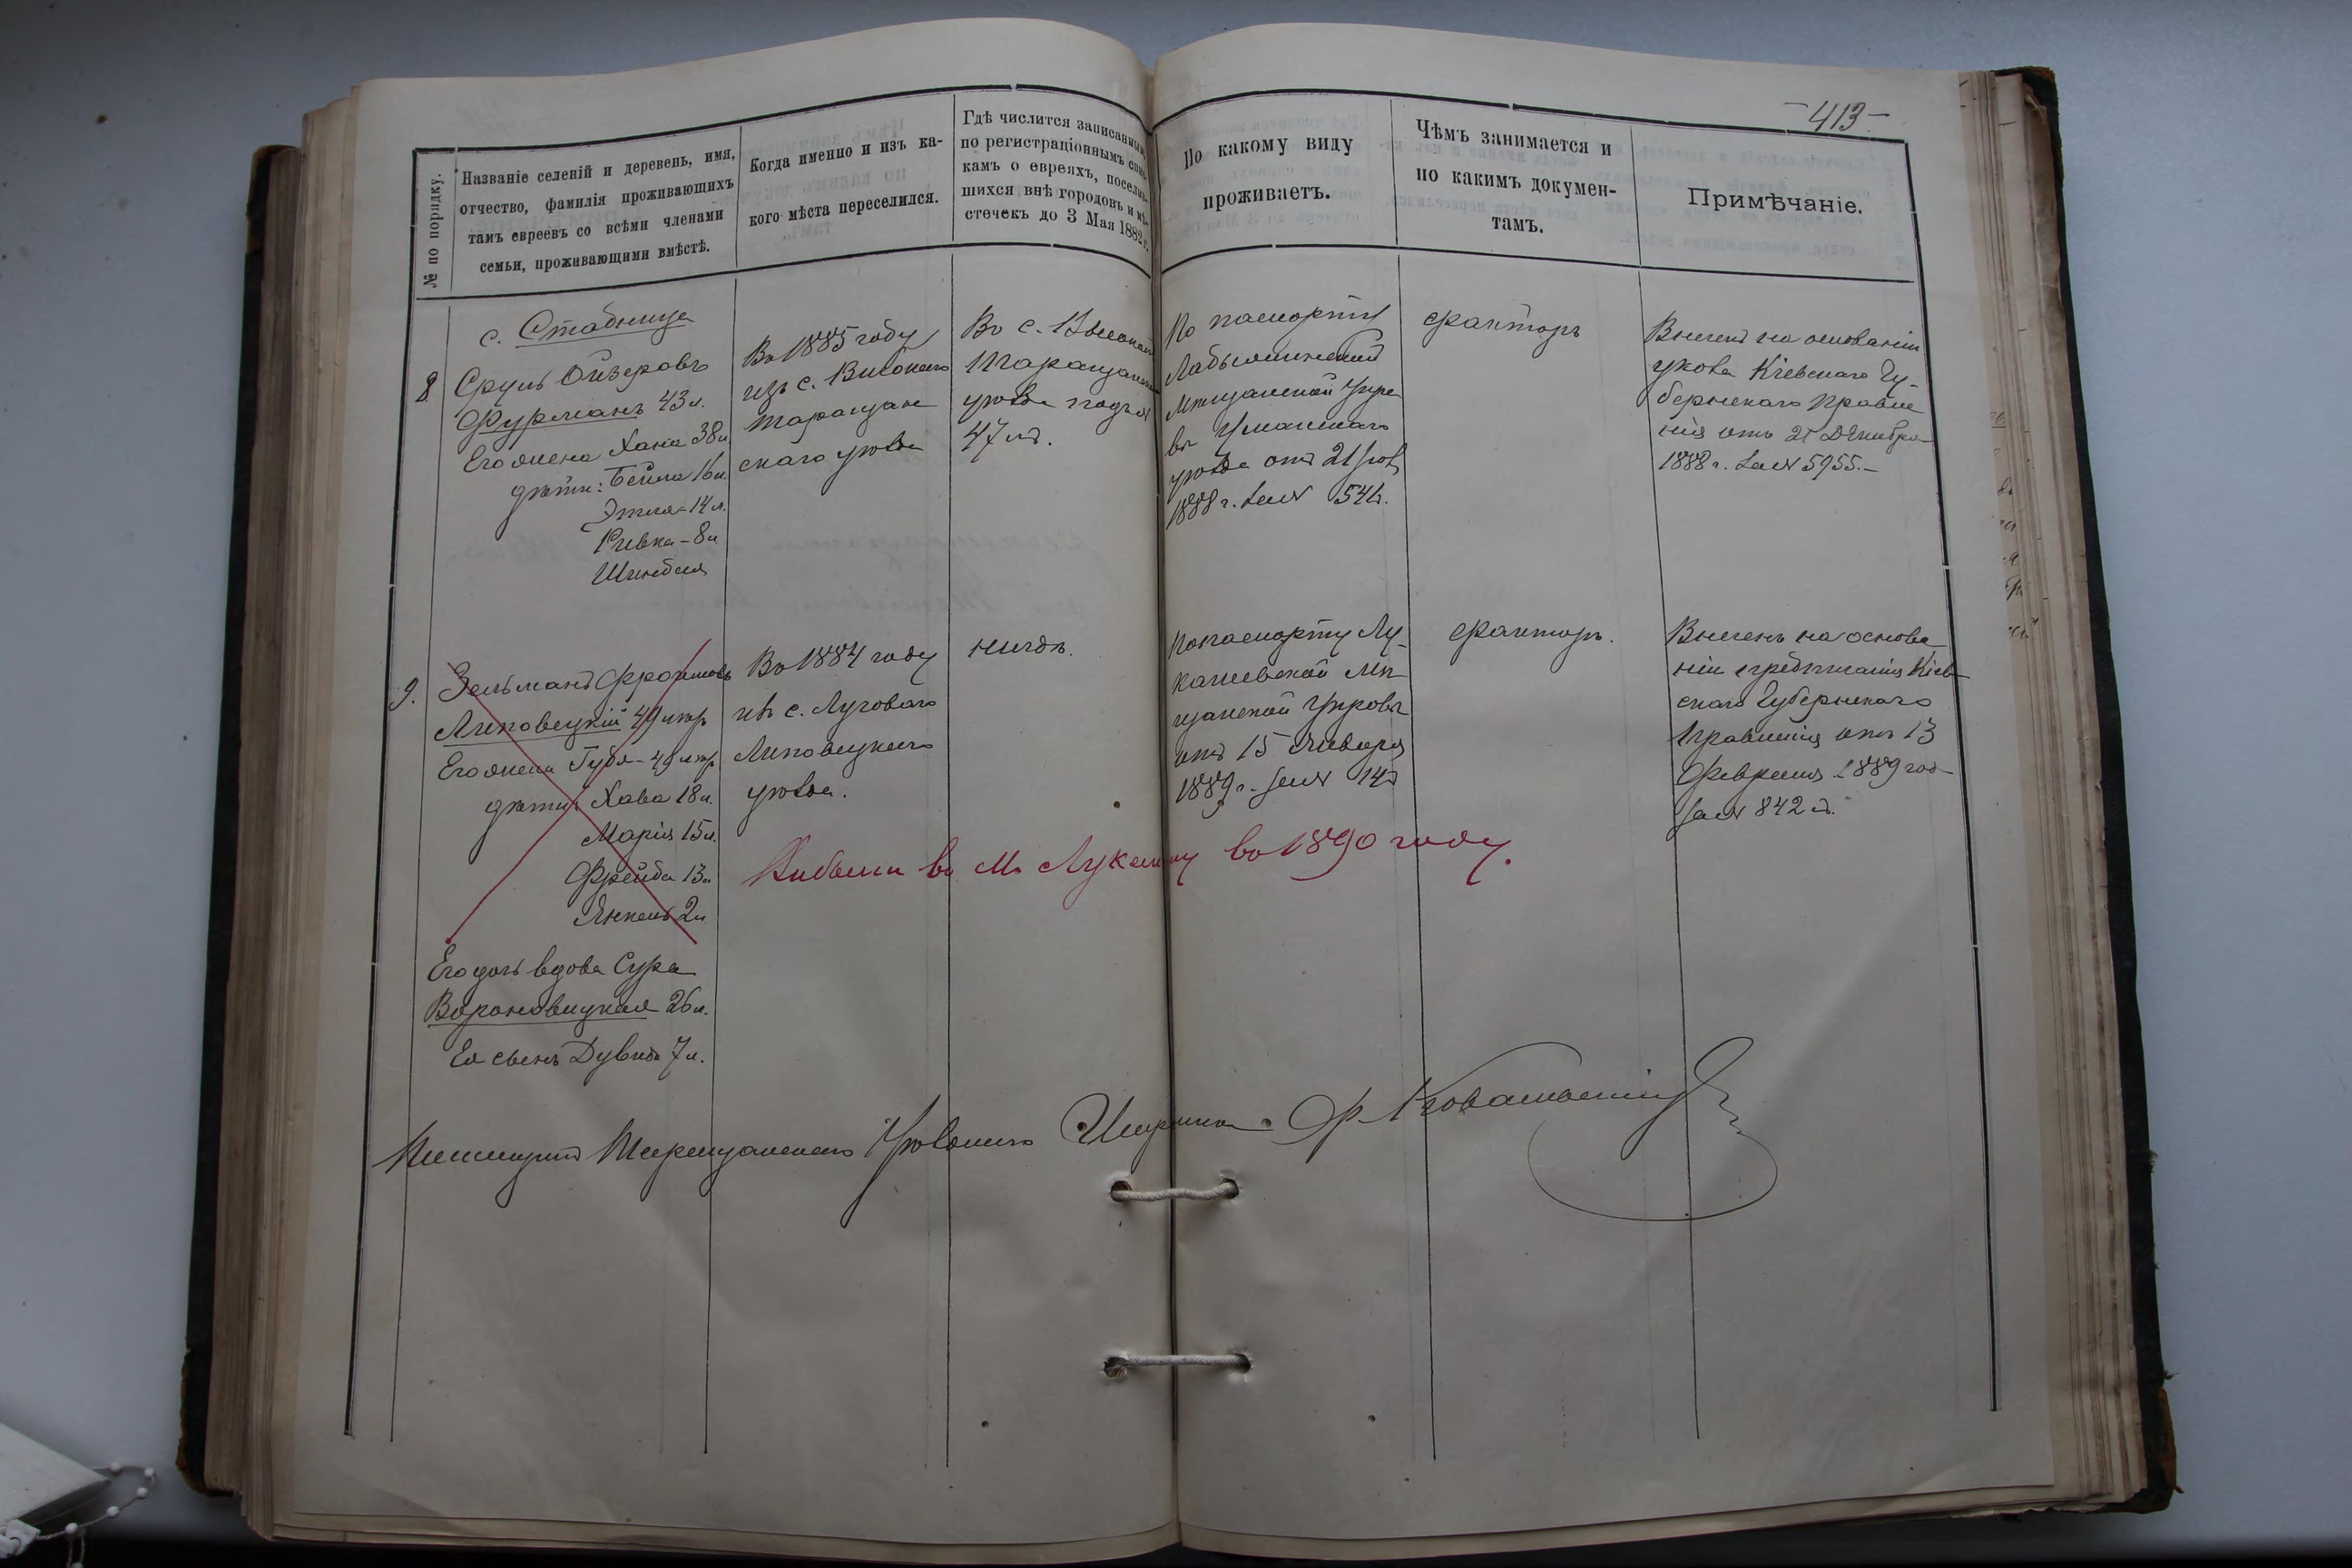 413
№ по порядку.
Названіе селеній и деревень, имя,
отчество, фамилія проживающихъ
тамъ евреевъ со всѣми членами
семьи, проживающими вмѣстѣ.
Когда именно и изъ ка-
кого мѣста переселился.
Гдѣ числится записаннымъ
по регистраціоннымъ спис-
камъ о евреяхъ, поселив-
шихся внѣ городовъ и мѣ-
стечекъ до 3 Мая 1882 г.
По какому виду
проживаетъ.
Чѣмъ занимается и
по какимъ докумен-
тамъ.
Примѣчаніе.
с. Стадница
8
Сруль Ойзеровъ
Фурманъ 43 л.
Его жена Хана 38 л.
дѣти: Бейла 16 л.
Этля - 14 л.
Ривка - 8 л.
Шиндля
Въ 1885 году
изъ с. Высокаго
Таращан
скаго уѣзда
Въ с. Высоком
Таращан
уѣзда подъ №
47 м.
По паспорту
мѣщанской Упра
вы Уманскаго
уѣзда отъ 21
1888 г. за № 546.
факторъ
Внесенъ на основаніи
указа Кіевскаго Гу-
бернскаго Правле
нія отъ 21 Декабря
1888 г. за № 5955.-
9.
Зельманъ Фроимовъ
Липовецкій 49 лѣтъ
Его жена Гудя - 49 лѣтъ
дѣти: Хава 18 л.
Марія 15 л.
Фрейда 13 л
Янкель 2 л
Его дочь вдова Сура
Вороновицкая 26 л.
Ея сынъ Дувидъ 7 л.
Въ 1884 году
изъ с. Луговаго
Липовецкаго
уѣзда.
нигдѣ.
По паспорту Лу-
кашевской Мѣ
щанской Управы
отъ 15 Января
1889 г. за № 14
факторъ.
Внесенъ на основа
ніи предписанія Кіев-
скаго Губернскаго
Правленія отъ 13
Февраля 1889 год
за № 842 м.
Выбыли въ М. въ 1890 году.
Таращанскаго Уѣзднаго